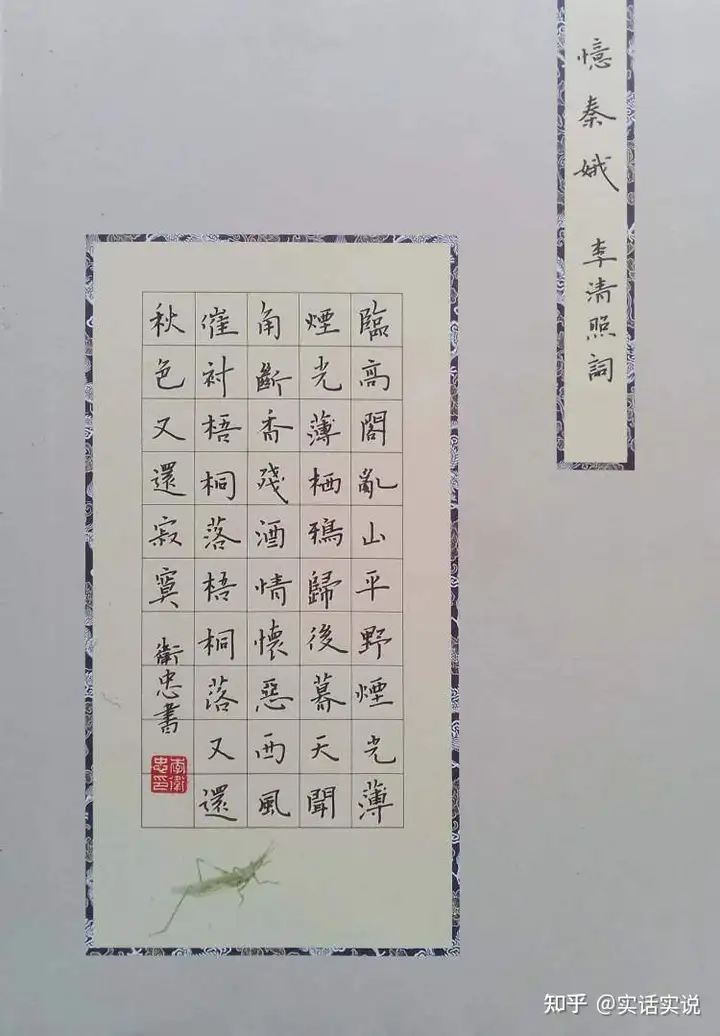 憶秦娥 李清照詞
臨高閣亂山平野煙光薄
煙光薄栖鴉歸後暮天聞
角斷香殘酒情懷惡西風
催衬梧桐落梧桐落又還
秋色又還寂寞 衛忠書
李衛忠印
知乎 @实话实说